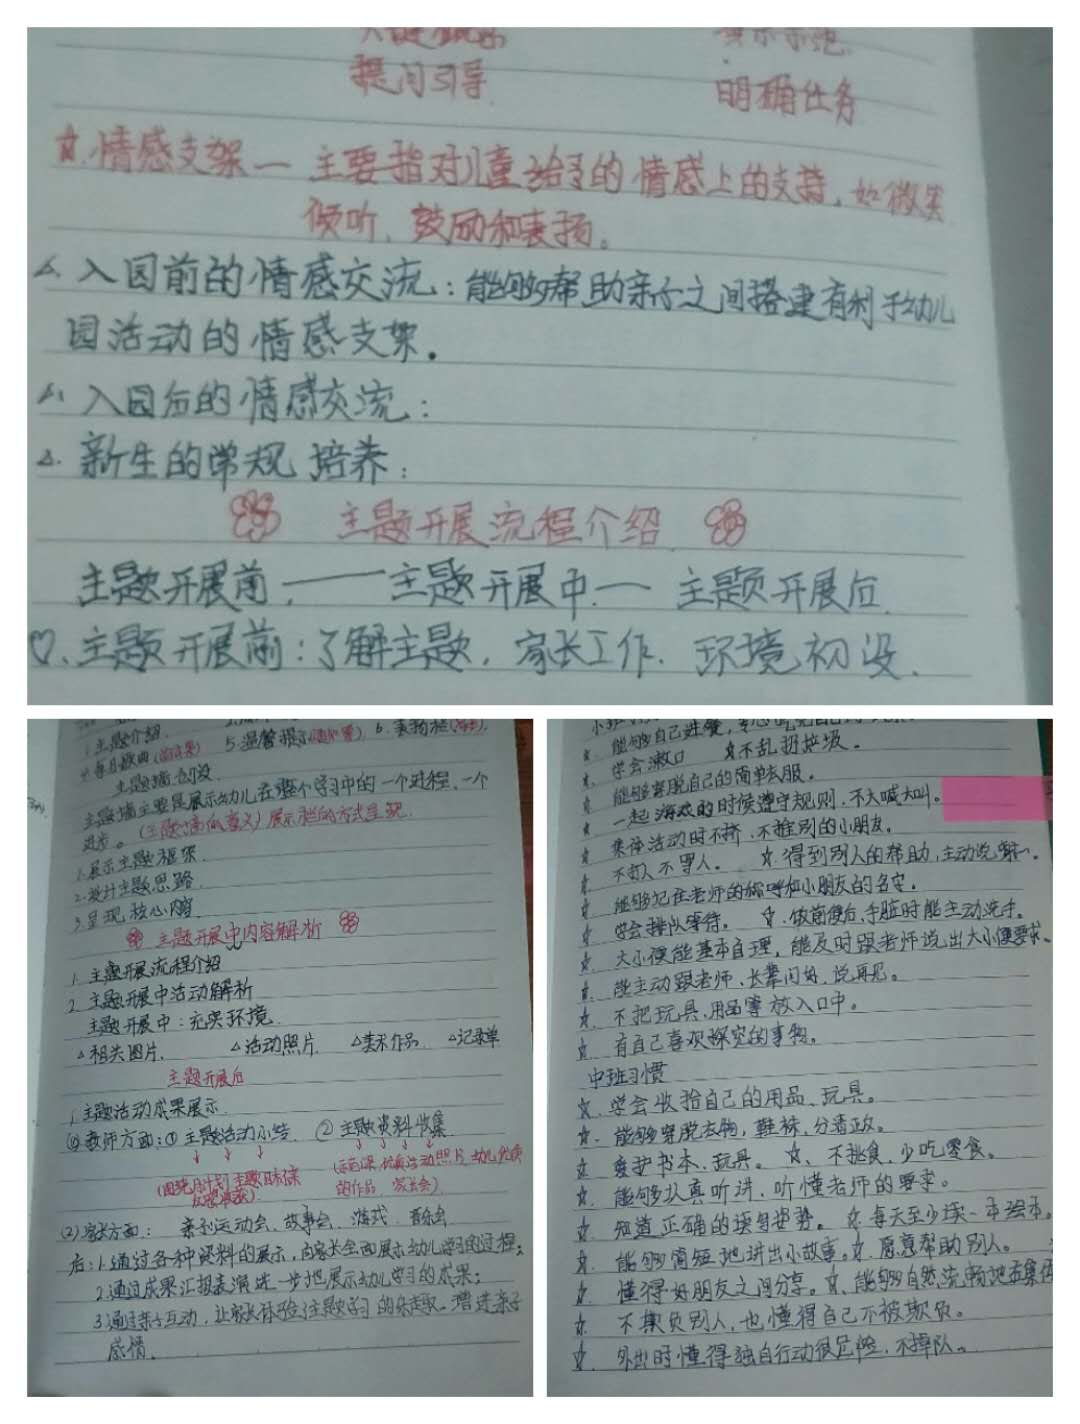 提问引导
明确任务
☆.情感支架— 主要指对儿童给予的情感上的支持,如微笑
倾听、鼓励和表扬。
△.入园前的情感交流:能够帮助亲子之间搭建有利于幼儿
园活动的情感支架.
△.入园后的情感交流:
△.新生的常规培养:
主题开展流程介绍
主题开展前.——主题开展中.— 主题开展后.
♡.主题开展前:了解主题.家长工作.环境初设.
1.主题介绍.
5.温馨提示
主题墙创设.
主题墙主要是展示幼儿在整个学习中的一个进程,一个
进步。(主题墙的意义)展示栏的方式呈现.
1.展示主题框架.
2.设计主题思路.
3.呈现核心内容.
主题开展中内容解析
1.主题开展流程介绍
2.主题开展中活动解析
主题开展中:充实环境.
△相关图片. △活动照片. △美术作品. △记录单
主题开展后
1.主题活动成果展示.
(1)教师方面:①主题活动小结. ②主题资料收集.
(2)家长方面: 亲子运动会、故事会、游戏、音乐会
后:1.通过各种资料的展示,向家长全面展示幼儿学习的过程;
2.通过成果汇报表演进一步地展示幼儿学习的成果;
3.通过亲子互动,让家长体验主题学习的乐趣.增进亲子
感情.
☆.能够自己进餐,
☆.学会漱口 ☆不乱扔垃圾。
☆.能够穿脱自己的简单衣服。
☆.一起游戏的时候遵守规则,不大喊大叫。
☆.集体活动时不挤,不推别的小朋友。
☆.不打人不骂人。 ☆.得到别人的帮助,主动说谢谢。
☆.能够记住老师的称呼和小朋友的名字。
☆.学会排队等待。 ☆.饭前便后,手脏时能主动洗手。
☆.大小便能基本自理,能及时跟老师说出大小便要求。
☆.能主动跟老师、长辈问好,说再见。
☆.不把玩具、用品等放入口中。
☆.有自己喜欢探究的事物。
中班习惯
☆.学会收拾自己的用品、玩具。
☆.能够穿脱衣物,鞋袜,分清正反。
☆.爱护书本、玩具。 ☆.不挑食,少吃零食。
☆.能够认真听讲,听懂老师的要求。
☆.知道正确的读写姿势。☆.每天至少读一本绘本。
☆.能够简短地讲出小故事。☆.愿意帮助别人。
☆.懂得好朋友之间分享。☆.能够自然流畅地在集体
☆.不欺负别人,也懂得自己不被欺负。
☆.外出时懂得独自行动很危险,不掉队。